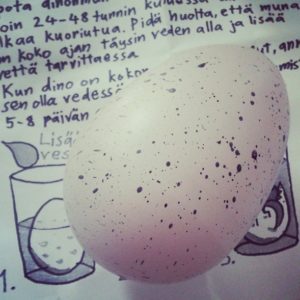 pota dinomun
oin 24-48 tunnin kuluessa
lkaa kuoriutua. Pidä huolta, että muna
on koko ajan täysin veden alla ja lisää
vettä tarvittaessa
Kun dino on kokon
sen olla vedessä ut, anna
5-8 päivän mis
Lisää
ves
1.